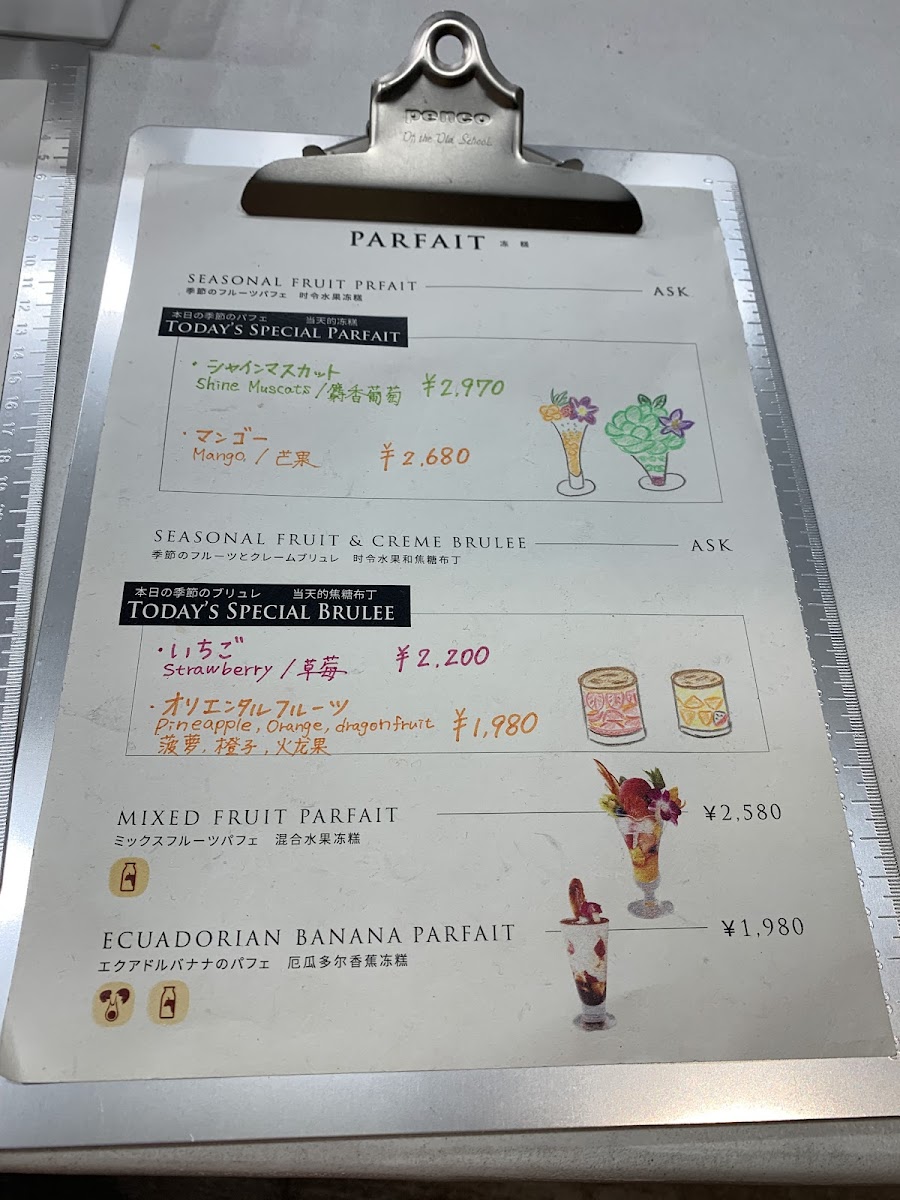 penco
On the Old School
PARFAIT 冻 糕
SEASONAL FRUIT PRFAIT ASK
季節のフルーツパフェ 时令水果冻糕
本日の季節のパフェ 当天的冻糕
TODAY'S SPECIAL PARFAIT
・シャインマスカット
Shine Muscats / 麝香葡萄 ¥2,970
・マンゴー
Mango. / 芒果 ¥2,680
SEASONAL FRUIT & CREME BRULEE ASK
季節のフルーツとクレームブリュレ 时令水果和焦糖布丁
本日の季節のブリュレ 当天的焦糖布丁
TODAY'S SPECIAL BRULEE
・いちご
Strawberry / 草莓 ¥2.200
・オリエンタルフルーツ
Pineapple, Orange, dragonfruit ¥1,980
菠萝, 橙子, 火龙果
MIXED FRUIT PARFAIT ¥2,580
ミックスフルーツパフェ 混合水果冻糕
ECUADORIAN BANANA PARFAIT ¥1,980
エクアドルバナナのパフェ 厄瓜多尔香蕉冻糕